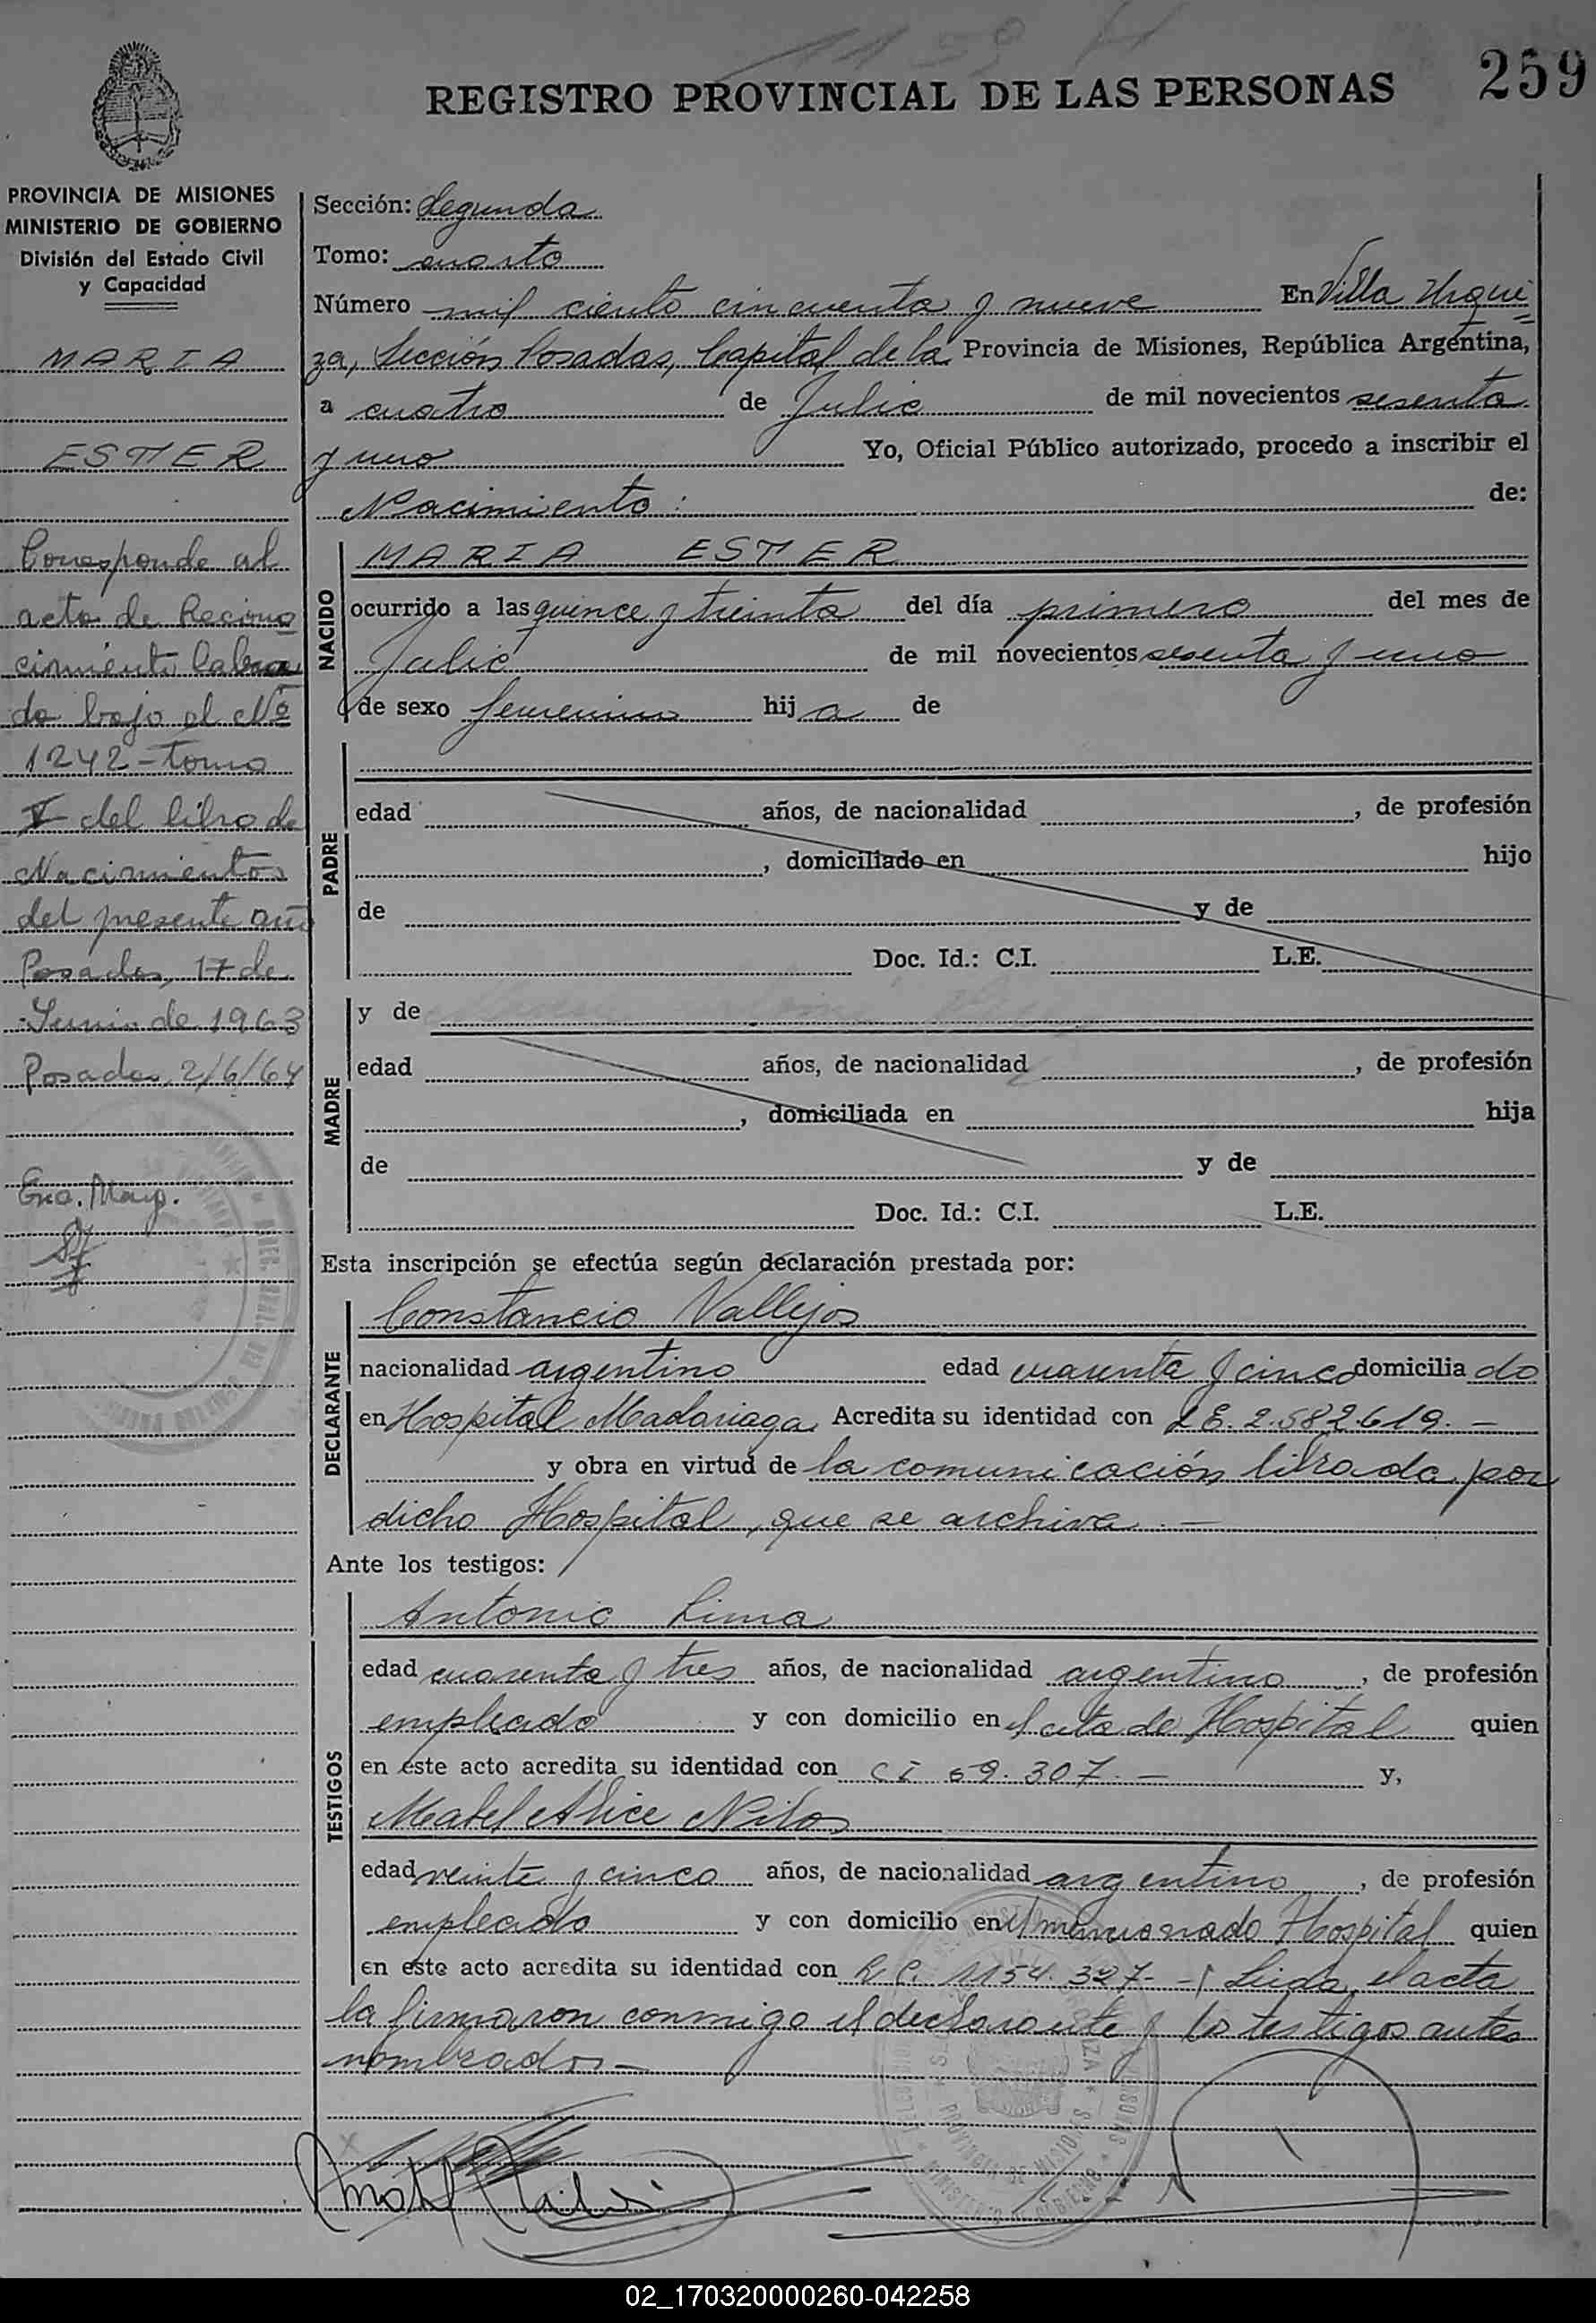 1159
REGISTRO PROVINCIAL DE LAS PERSONAS
259
PROVINCIA DE MISIONES
MINISTERIO DE GOBIERNO
División del Estado Civil
y Capacidad
MARIA
ESTHER
Corresponde al
acta de Recono
cimiento labra
da bajo el Nº
1242 - tomo
V del libro de
Nacimientos
del presente año
Posadas, 17 de
Junio de 1963
Posadas, 2/6/64
Sección: Segunda
Tomo: cuarto
Número mil ciento cincuenta y nueve En Villa Urqui=
za, Sección Posadas, Capital de la Provincia de Misiones, República Argentina,
a cuatro de Julio de mil novecientos sesenta
y uno Yo, Oficial Público autorizado, procedo a inscribir el
Nacimiento: de:
NACIDO
MARIA ESTHER
ocurrido a las quince y treinta del día primero del mes de
Julio de mil novecientos sesenta y uno
de sexo femenino hija de
PADRE
edad años, de nacionalidad , de profesión
, domiciliado en hijo
de y de
Doc. Id.: C.I. L.E.
MADRE
y de
edad años, de nacionalidad , de profesión
, domiciliada en hija
de y de
Doc. Id.: C.I. L.E.
Esta inscripción se efectúa según declaración prestada por:
DECLARANTE
Constancio Vallejos
nacionalidad argentino edad cuarenta y cinco domiciliado
en Hospital Madariaga Acredita su identidad con L E. 2.582.619. -
y obra en virtud de la comunicación librada por
dicho Hospital, que se archiva. -
Ante los testigos:
TESTIGOS
Antonio Lima
edad cuarenta y tres años, de nacionalidad argentino, de profesión
empleado y con domicilio en Hospital quien
en este acto acredita su identidad con C I 59.307. - y,
Mabel Alice
edad veinte y cinco años, de nacionalidad argentino, de profesión
empleado y con domicilio en el mencionado Hospital quien
en este acto acredita su identidad con 1154.327. - Leida el acta
la firmaron conmigo el declarante y los testigos antes
nombrados -
02_170320000260-042258